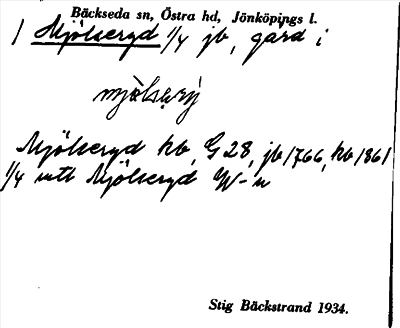 Bäckseda sn, Östra hd, Jönköpings l.
1 Mjölseryd 1/4 jb, gård i
Mjölseryd kb, G 28, jb 1766, kb 1861
1/4 utt Mjölseryd
Stig Bäckstrand 1934.